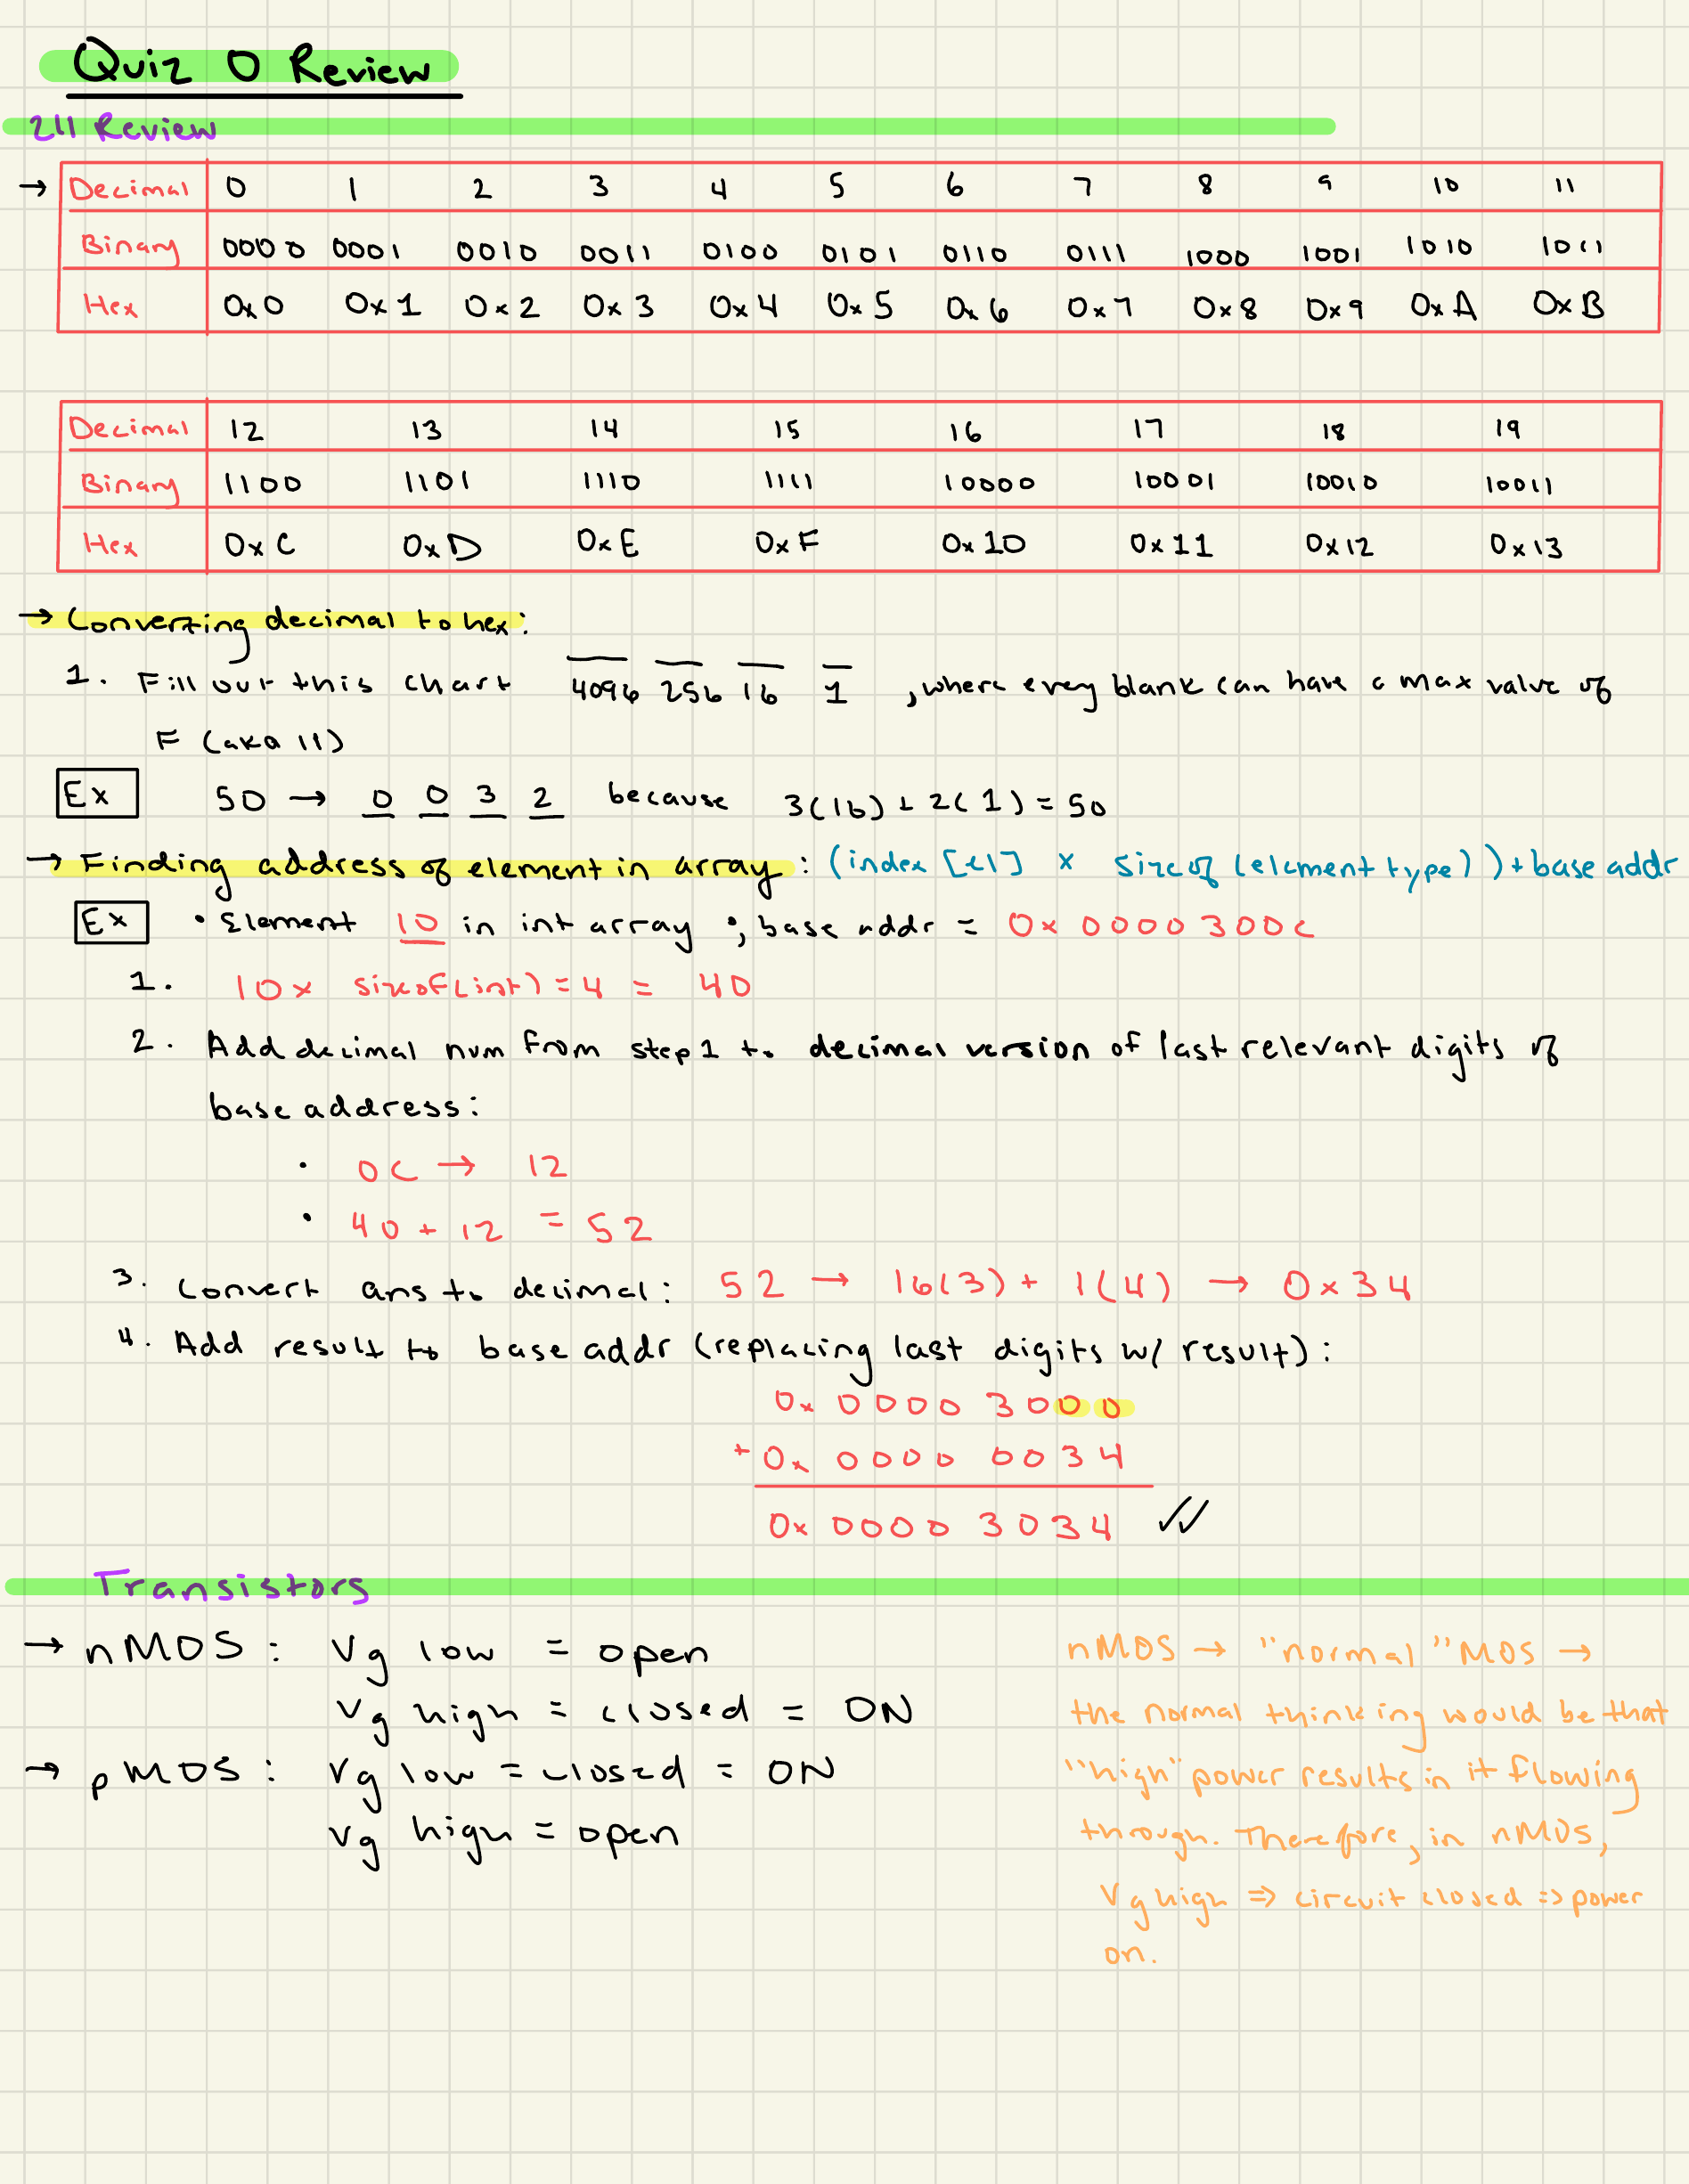 Quiz 0 Review
211 Review
→ Decimal 0 1 2 3 4 5 6 7 8 9 10 11
Binary 0000 0001 0010 0011 0100 0101 0110 0111 1000 1001 1010 1011
Hex 0x0 0x1 0x2 0x3 0x4 0x5 0x6 0x7 0x8 0x9 0xA 0xB
Decimal 12 13 14 15 16 17 18 19
Binary 1100 1101 1110 1111 10000 10001 10010 10011
Hex 0xC 0xD 0xE 0xF 0x10 0x11 0x12 0x13
→ Converting decimal to hex:
1. Fill out this chart 4096 256 16 1 , where every blank can have a max value of
F (aka 11)
Ex 50 → 0 0 3 2 because 3(16) + 2(1) = 50
→ Finding address of element in array: (index [el] x sizeof (element type)) + base addr
Ex • Element 10 in int array ; base addr = 0x 0000 300C
1. 10 x sizeof(int) = 4 = 40
2. Add decimal num from step 1 to decimal version of last relevant digits of
base address:
• 0C → 12
• 40 + 12 = 52
3. Convert ans to decimal: 52 → 16(3) + 1(4) → 0x34
4. Add result to base addr (replacing last digits w/ result):
0x 0000 3000
+ 0x 0000 0034
0x 0000 3034 ✓✓
Transistors
→ nMOS: Vg low = open
Vg high = closed = ON
→ pMOS: Vg low = closed = ON
Vg high = open
nMOS → "normal" MOS →
the normal thinking would be that
"high" power results in it flowing
through. Therefore, in nMOS,
Vg high => circuit closed => power
on.